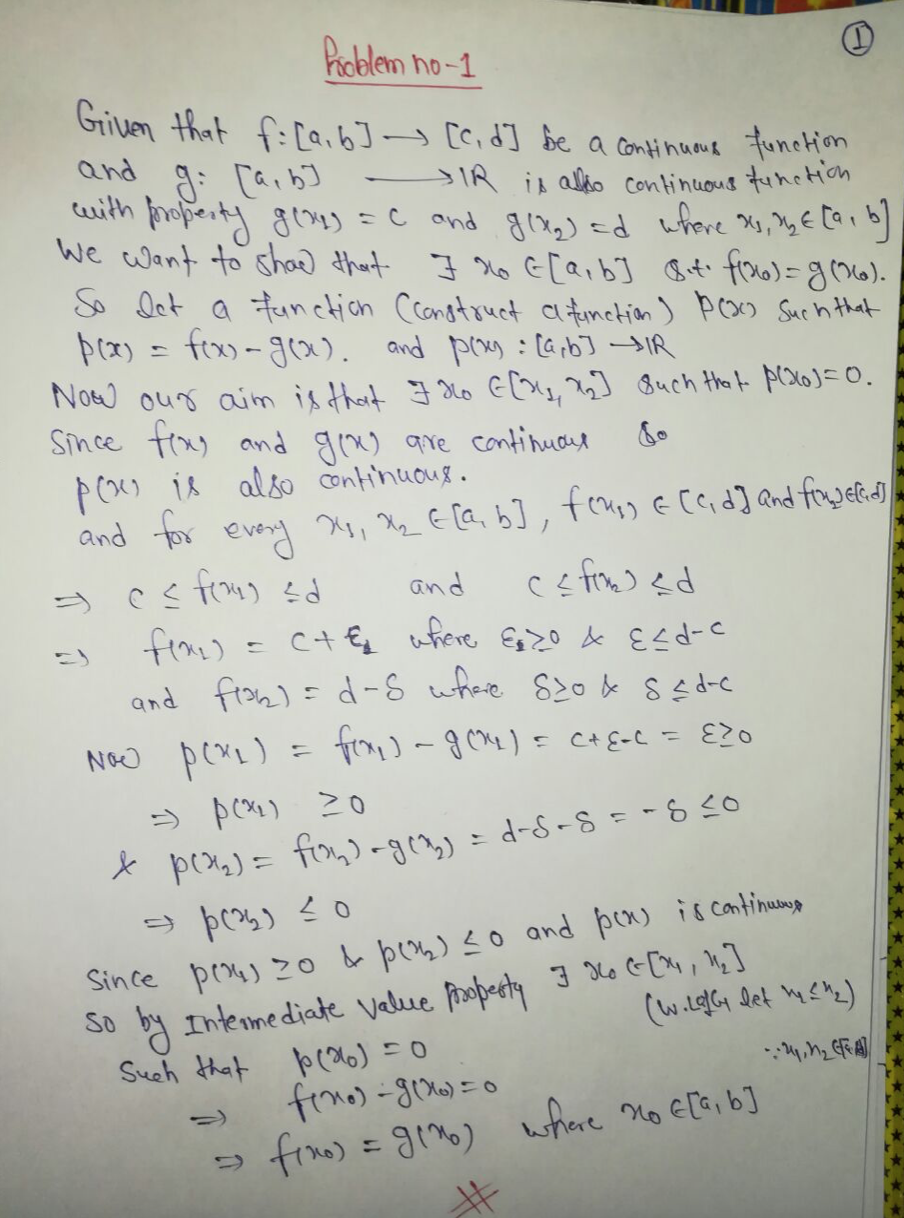 ①
Problem no-1
Given that f: [a, b] → [c, d] be a continuous function
and g: [a, b] → IR is also continuous function
with property g(x₁) = c and g(x₂) = d where x₁, x₂ ∈ [a, b]
We want to show that ∃ x₀ ∈ [a, b] s.t. f(x₀) = g(x₀).
So let a function (construct a function) p(x) such that
p(x) = f(x) - g(x). and p(x) : [a, b] → IR
Now our aim is that ∃ x₀ ∈ [x₁, x₂] such that p(x₀) = 0.
Since f(x) and g(x) are continuous so
p(x) is also continuous.
and for every x₁, x₂ ∈ [a, b], f(x₁) ∈ [c, d] and f(x₂) ∈ [c, d]
⇒ c ≤ f(x₁) ≤ d and c ≤ f(x₂) ≤ d
⇒ f(x₁) = c + ε₁ where ε₁ ≥ 0 & ε ≤ d-c
and f(x₂) = d - δ where δ ≥ 0 & δ ≤ d-c
Now p(x₁) = f(x₁) - g(x₁) = c + ε - c = ε ≥ 0
⇒ p(x₁) ≥ 0
& p(x₂) = f(x₂) - g(x₂) = d - δ - δ = - δ ≤ 0
⇒ p(x₂) ≤ 0
Since p(x₁) ≥ 0 & p(x₂) ≤ 0 and p(x) is continuous
so by Intermediate Value Property ∃ x₀ ∈ [x₁, x₂]
(W.LofG let x₁ ≤ x₂)
Such that p(x₀) = 0
∵ x₁, x₂ ∈
⇒ f(x₀) - g(x₀) = 0
⇒ f(x₀) = g(x₀) where x₀ ∈ [a, b]